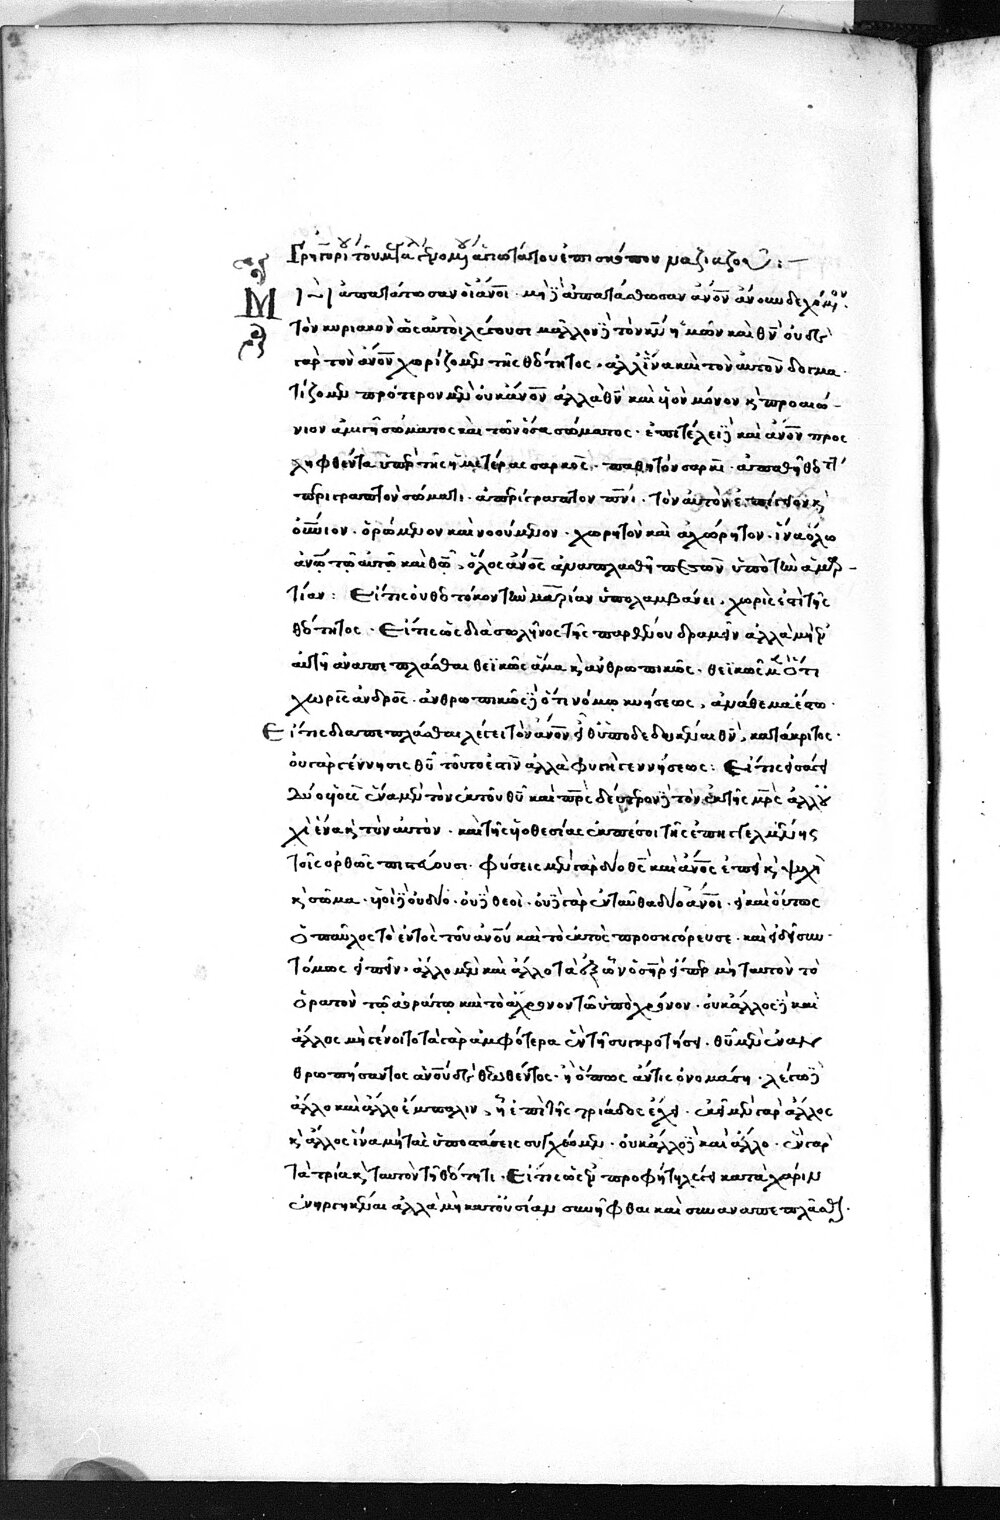 Γρηγορίου τοῦ μεγάλου ἐπισκόπου ναζιαζοῦ :—
Μὴ ἀπατάτωσαν οἱ ἄνοι · μὴ δὲ ἀπατάσθωσαν ἄνον ἄνουν δεχόμενοι
τὸν κυριακὸν ὡς αὐτοὶ λέγουσι μᾶλλον δὲ τὸν κν ἡμῶν καὶ θν · οὐδὲ
γὰρ τὸν ἄνον χωρίζομεν τῆς θεότητος · ἀλλ' ἕνα καὶ τὸν αὐτὸν δογμα
τίζομεν πρότερον μὲν οὐκ ἄνον ἀλλὰ θν καὶ υἱὸν μόνον κ προαιώ-
νιον ἀμιγῆ σώματος καὶ τῶν ὅσα σώματος · ἐπὶ τέλει δὲ καὶ ἄνον προς
ληφθέντα ὑπὲρ τῆς ἡμετέρας σωρίας · παθητὸν σαρκὶ · ἀπαθῆ θεότητι
περιγραπτὸν σώματι · ἀπερίγραπτον πνι · τὸν αὐτὸν ἐπίγειον κ
οὐνιον · ὁρώμενον καὶ νοούμενον · χωρητὸν καὶ ἀχώρητον · ἵνα ὅλω
ἀνω τῶ αὐτῶ καὶ θω, ὅλος ἄνος ἀναπλασθῆ πεσὼν ὑπὸ τὴν ἁμαρ-
τίαν : Εἴ τις οὐ θεοτόκον τὴν μαρίαν ὑπολαμβάνει, χωρίς ἐστι τῆς
θεότητος · Εἴ τις ὡς διὰ σωλῆνος τῆς παρθένου δραμεῖν ἀλλὰ μὴ ἐν
αὐτῆ διαπεπλάσθαι θεϊκῶς ἅμα κ ἀνθρωπικῶς · θεϊκῶς μὲν ὅτι
χωρὶς ἀνδρὸς · ἀνθρωπικῶς δὲ ὅτι νόμω κυήσεως, ἀνάθεμα ἔστω ·
Εἴ τις διαπεπλάσθαι λέγει τὸν ἄνον εἶθ' ὑποδεδυκέναι θν, κατάκριτος ·
οὐ γὰρ γέννησις θυ τοῦτο ἐστὶν ἀλλὰ φυγὴ γεννήσεως : Εἴ τις εἰσάγει
δύο υἱοὺς ἕνα μὲν τὸν ἐκ τοῦ θυ καὶ πρς δεύτερον δὲ τὸν ἐκ τῆς μρς ἀλλ' οὐ
χὶ ἕνα κ τὸν αὐτὸν · καὶ τῆς υἱοθεσίας ἐκπέσοι τῆς ἐπηγγελμένης
τοῖς ὀρθῶς πιστεύουσι · Φύσεις μὲν γὰρ δύο θς καὶ ἄνος ἐπεὶ κ ψυχὴ
κ σῶμα · υἱοὶ δὲ οὐ δύο · οὐδὲ θεοὶ · οὐδὲ γὰρ ἐνταῦθα δύο ἄνοι · εἰ καὶ οὕτως
ὁ παῦλος τὸ ἐντὸς τοῦ ἀνου καὶ τὸ ἐκτὸς προσηγόρευσε · καὶ εἰ δεῖ συν
τόμως εἰπεῖν · ἄλλο μὲν καὶ ἄλλο τὰ ἐξ ὧν ὁ σὴρ εἴπερ μὴ ταυτὸν τὸ
ὁρατὸν τῶ ἀοράτω καὶ τὸ ἄχρονον τῶ ὑπὸ χρόνον · οὐκ ἄλλος δὲ καὶ
ἄλλος μὴ γένοιτο τὰ γὰρ ἀμφότερα ἓν τῆ συγκράσει · θυ μὲν ἐναν
θρωπήσαντος ἀνου δὲ θεωθέντος · ἢ ὅπως ἄν τις ὀνομάση · λέγω δὲ
ἄλλο καὶ ἄλλο ἔμπαλιν, ἢ ἐπὶ τῆς τριάδος ἔχει · ἐκεῖ μὲν γὰρ ἄλλος
κ ἄλλος ἵνα μὴ τὰς ὑποστάσεις συγχέωμεν · οὐκ ἄλλο δὲ καὶ ἄλλο · ἓν γὰρ
τὰ τρία κ ταυτὸν τῆ θεότητι · Εἴ τις ὡς ἐν προφήτη λέγει κατὰ χάριν
ἐνηργηκέναι ἀλλὰ μὴ κατουσίαν συνῆφθαι καὶ συναναπεπλάσθαι ·